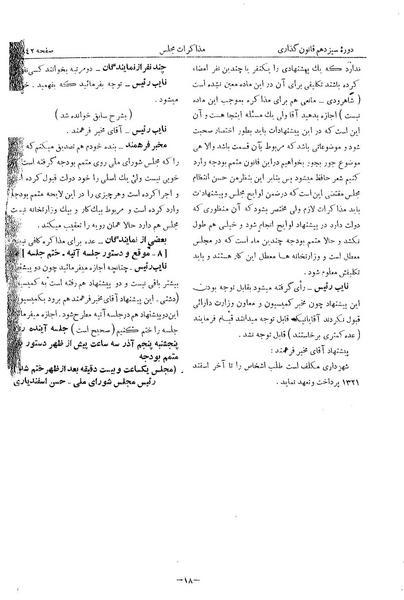 دورهٔ سیزدهم قانون گذاری
مذاکرات مجلس
صفحه ۴۲
ندارد که یك پیشنهادی را یکنفر یا چندین نفر امضاء
کرده باشند تکلیفی برای آن در این ماده معین نشده است
(شاهرودی - مانعی هم برای مذاکره بموجب این ماده
نیست) اجازه بدهید آقا ولی یك مسئله اینجا هست و آن
این است که در این پیشنهادات باید بطور اختصار صحبت
شود و موضوعاتی باشد که مربوط بآن قسمت باشد والا هی
موضوع جور بجور بخواهیم در این قانون متمم بودجه وارد
کنیم شعر حافظ میشود پس بنابر این بنظر من حسن انتظام
مجلس مقتضی این است که در ضمن لوایح مجلس وپیشنهادات
باید مذاکرات لازم ولی مختصر بشود که آن منظوری که
دولت دارد در پیشنهاد لوایح انجام شود و خیلی هم طول
نکشد و حالا متمم بودجه چندین ماه است که در مجلس
معطل است و وزارتخانه ها معطل این کار هستند و باید
تکلیفش معلوم شود.
نایب رئیس - رأی گرفته میشود بقابل توجه بودن
این پیشنهاد چون مخبر کمیسیون و معاون وزارت دارائی
قبول نکردند آقایانیکه قابل توجه میدانند قیام فرمایند
(عده کمتری برخاستند) قابل توجه نشد.
پیشنهاد آقای مخبر فرهمند:
شهرداری مکلف است طلب اشخاص را تا آخر اسفند
۱۳۲۱ پرداخت وتعهد نماید.
چند نفر از نمایندگان - دو مرتبه بخوانند کسی
نایب رئیس - توجه بفرمائید که بفهمید
میشود.
(بشرح سابق خوانده شد)
نایب رئیس - آقای مخبر فرهمند.
مخبر فرهمند - بنده خودم هم تصدیق میکنم که
را که مجلس شورای ملی روی متمم بودجه گرفته است
خوبی نیست ولی یك اصلی را خود دولت قبول کرده
و اجرا کرده است وهر چیزی را در این لایحه متمم بودجه
وارد کرده است و مربوط بیك کار و بیك وزارتخانه نیست
مجلس هم دارد حالا همان رویه را تعقیب میکند.
بعضی از نمایندگان - عده برای مذاکره کافی نیست
[۸ - موقع و دستور جلسه آتیه - ختم جلسه]
نایب رئیس - چنانچه اجازه میفرمائید چون دو پیشنهاد
بیشتر باقی نیست و دو پیشنهاد هم رفته است به کمیسیون
(دشتی - این پیشنهاد آقای مخبر فرهمند هم برود بکمیسیون)
این دو پیشنهاد هم در جلسه آتیه مطرح شود. اجازه میفرمائید
جلسه را ختم کنیم (صحیح است) جلسه آینده روز
پنجشنبه پنجم آذر سه ساعت پیش از ظهر دستور
متمم بودجه
(مجلس یکساعت و بیست دقیقه بعد از ظهر ختم شد)
رئیس مجلس شورای ملی - حسن اسفندیاری
-۱۸-